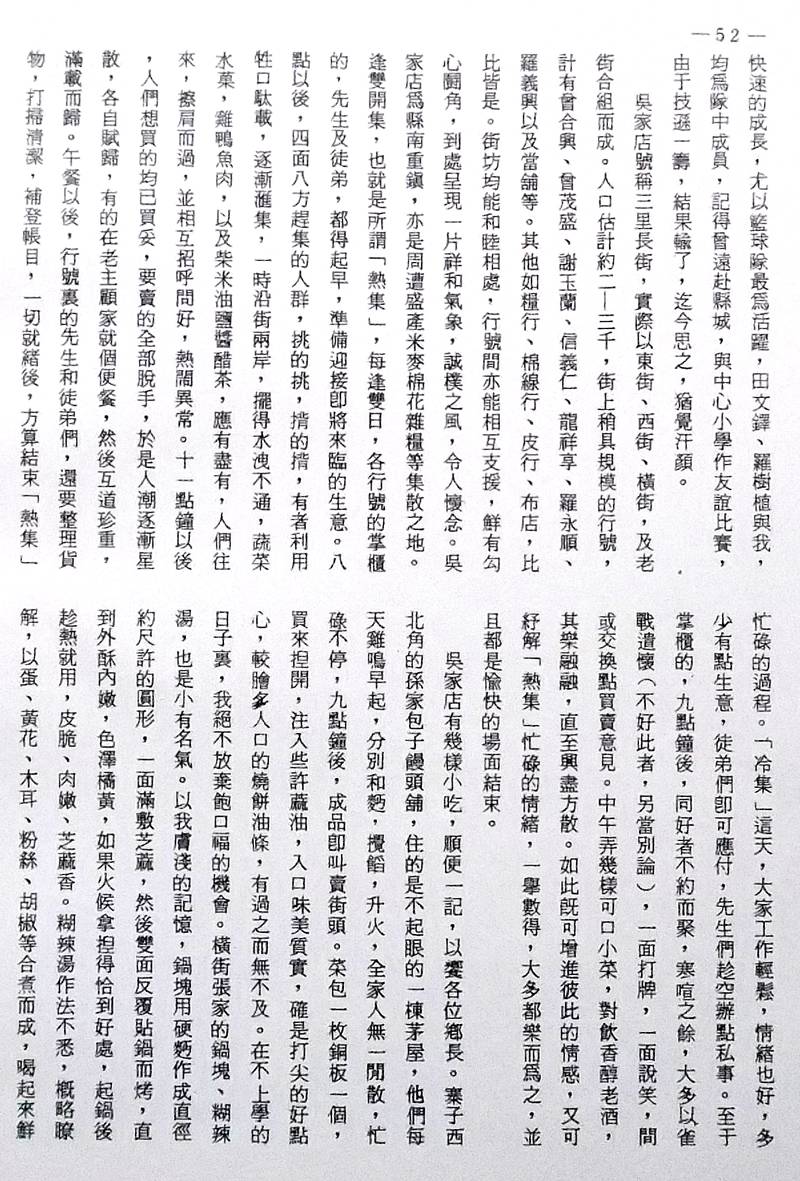 —52—
快速的成長，尤以籃球隊最為活躍，田文鐸、羅樹植與我，
均為隊中成員，記得曾遠赴縣城，與中心小學作友誼比賽，
由于技遜一籌，結果輸了，迄今思之，猶覺汗顏。
吳家店號稱三里長街，實際以東街、西街、橫街，及老
街合組而成。人口估計約二—三千，街上稍具規模的行號，
計有曾合興、曾茂盛、謝玉蘭、信義仁、龍祥享、羅永順、
羅義興以及當舖等。其他如糧行、棉線行、皮行、布店，比
比皆是。街坊均能和睦相處，行號間亦能相互支援，鮮有勾
心鬪角，到處呈現一片祥和氣象，誠樸之風，令人懷念。吳
家店為縣南重鎮，亦是周遭盛產米麥棉花雜糧等集散之地。
逢雙開集，也就是所謂「熱集」，每逢雙日，各行號的掌櫃
的，先生及徒弟，都得起早，準備迎接卽將來臨的生意。八
點以後，四面八方趕集的人群，挑的挑，揹的揹，有者利用
牲口駄載，逐漸滙集，一時沿街兩岸，擺得水洩不通，蔬菜
水菓，雞鴨魚肉，以及柴米油鹽醬醋茶，應有盡有，人們往
來，擦肩而過，並相互招呼問好，熱鬧異常。十一點鐘以後
，人們想買的均已買妥，要賣的全部脫手，於是人潮逐漸星
散，各自賦歸，有的在老主顧家就個便餐，然後互道珍重，
滿載而歸。午餐以後，行號裏的先生和徒弟們，還要整理貨
物，打掃清潔，補登帳目，一切就緒後，方算結束「熱集」
忙碌的過程。「冷集」這天，大家工作輕鬆，情緒也好，多
少有點生意，徒弟們卽可應付，先生們趁空辦點私事。至于
掌櫃的，九點鐘後，同好者不約而聚，寒喧之餘，大多以雀
戰遣懷（不好此者，另當別論），一面打牌，一面說笑，間
或交換點買賣意見。中午弄幾樣可口小菜，對飲香醇老酒，
其樂融融，直至興盡方散。如此旣可增進彼此的情感，又可
紓解「熱集」忙碌的情緒，一舉數得，大多都樂而為之，並
且都是愉快的場面結束。
吳家店有幾樣小吃，順便一記，以饗各位鄉長。寨子西
北角的孫家包子饅頭舖，住的是不起眼的一棟茅屋，他們每
天雞鳴早起，分別和麪，攪餡，升火，全家人無一閒散，忙
碌不停，九點鐘後，成品卽叫賣街頭。菜包一枚銅板一個，
買來揑開，注入些許蔴油，入口味美質實，確是打尖的好點
心，較膾多人口的燒餅油條，有過之而無不及。在不上學的
日子裏，我絕不放棄飽口福的機會。橫街張家的鍋塊、糊辣
湯，也是小有名氣。以我膚淺的記憶，鍋塊用硬麪作成直徑
約尺許的圓形，一面滿敷芝蔴，然後雙面反覆貼鍋而烤，直
到外酥內嫩，色澤橘黃，如果火候拿揑得恰到好處，起鍋後
趁熱就用，皮脆、肉嫩、芝蔴香。糊辣湯作法不悉，概略瞭
解，以蛋、黃花、木耳、粉絲、胡椒等合煮而成，喝起來鮮